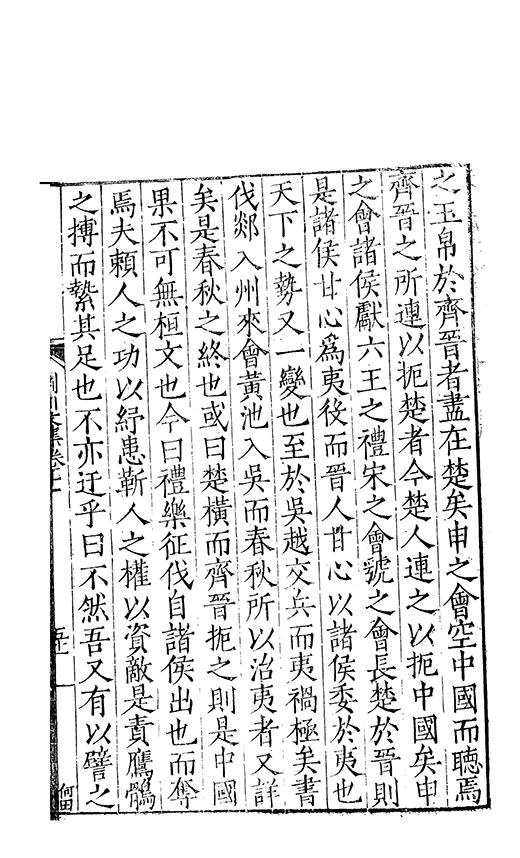 之玉帛於齊晉者盡在楚矣申之會空中國而聽焉
齊晉之所連以扼楚者今楚人連之以扼中國矣申
之會諸侯獻六王之禮宋之會虢之會長楚於晉則
是諸侯甘心爲夷役而晉人甘心以諸侯委於夷也
天下之勢又一變也至於吳越交兵而夷禍極矣書
伐郯入州來會黃池入吳而春秋所以治夷者又詳
矣是春秋之終也或曰楚橫而齊晉扼之則是中國
果不可無桓文也今曰禮樂征伐自諸侯出也而奪
焉夫賴人之功以紓患靳人之權以資敵是責鷹鶻
之搏而縶其足也不亦迂乎曰不然吾又有以譬之
川文集卷十
何田